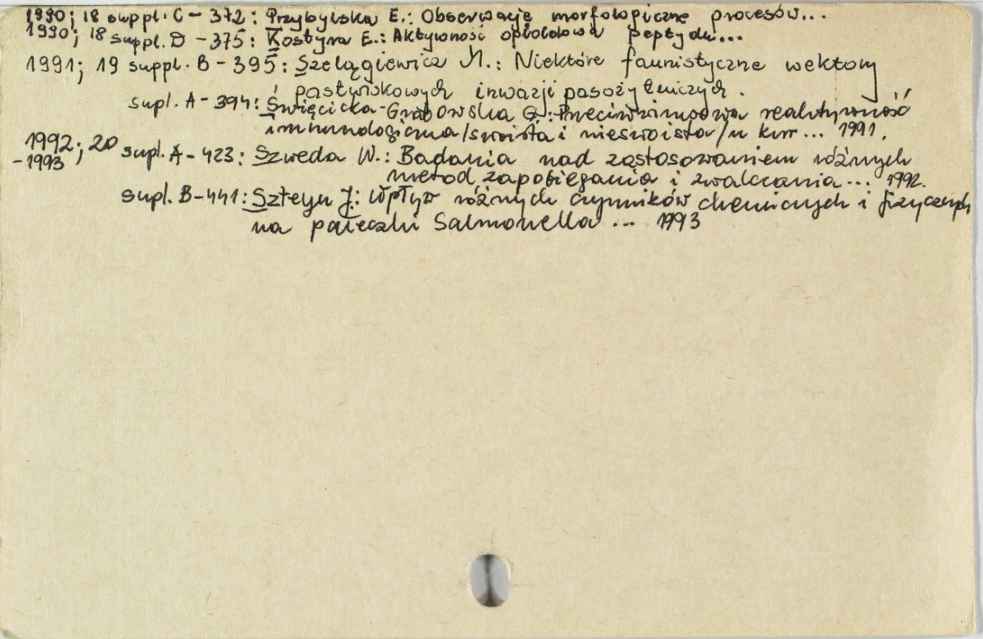 1990; 18 suppl. C - 372: Przybylska E.: Obserwacje morfologiczne procesów...
1990; 18 suppl. D - 375: Kostyra E.: Aktywność opioidowa peptydu...
1991; 19 suppl. B - 395: Szelągiewicz M.: Niektóre faunistyczne wektory
pastwiskowych inwazji pasożytniczych.
supl. A - 394: Święcicka-Grabowska G.: Przeciwgrzybowa reaktywność
immunologiczna /swoista i nieswoista/ u kur... 1991.
1992; 20
-1993 supl. A - 423: Szweda W.: Badania nad zastosowaniem różnych
metod zapobiegania i zwalczania... 1992.
supl. B - 441: Szteyn J.: Wpływ różnych czynników chemicznych i fizycznych
na pałeczki Salmonella ... 1993